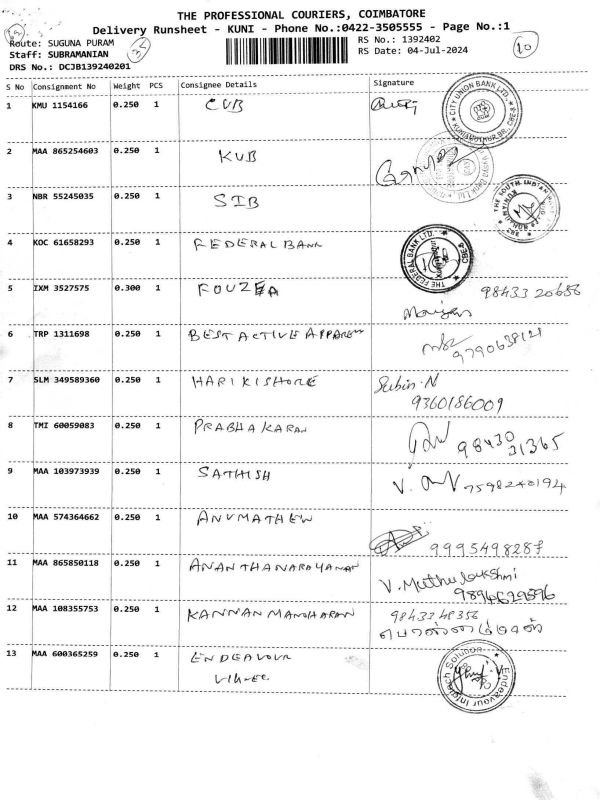 THE PROFESSIONAL COURIERS, COIMBATORE
Delivery Runsheet - KUNI - Phone No.:0422-3505555 - Page No.:1
Route: SUGUNA PURAM
Staff: SUBRAMANIAN
DRS No.: DCJB139240201
RS No.: 1392402
RS Date: 04-Jul-2024
10
S No Consignment No Weight PCS Consignee Details Signature
1 KMU 1154166 0.250 1 CUB
CITY UNION BANK LTD.
2 MAA 865254603 0.250 1 KVB
3 NBR 55245035 0.250 1 SIB
THE SOUTH INDIAN
4 KOC 61658293 0.250 1 FEDERAL BANK
THE FEDERAL BANK LTD. CBE-8
5 IXM 3527575 0.300 1 FOUZEA
98433 20656
6 TRP 1311698 0.250 1 BEST ACTIVE APPAREL
9790638121
7 SLM 349589360 0.250 1 HARI KISHORE Subin.N
9360186009
8 TMI 60059083 0.250 1 PRABHAKARAN
98430
31365
9 MAA 103973939 0.250 1 SATHISH
7598240194
10 MAA 574364662 0.250 1 ANUMATHEW
9995498287
11 MAA 865850118 0.250 1 ANANTHANARAYANAN
V. Muthulakshmi
9894629596
12 MAA 108355753 0.250 1 KANNAN MANOHARAN
9843348356
13 MAA 600365259 0.250 1 ENDEAVOUR
Endeavour Infotech Solution